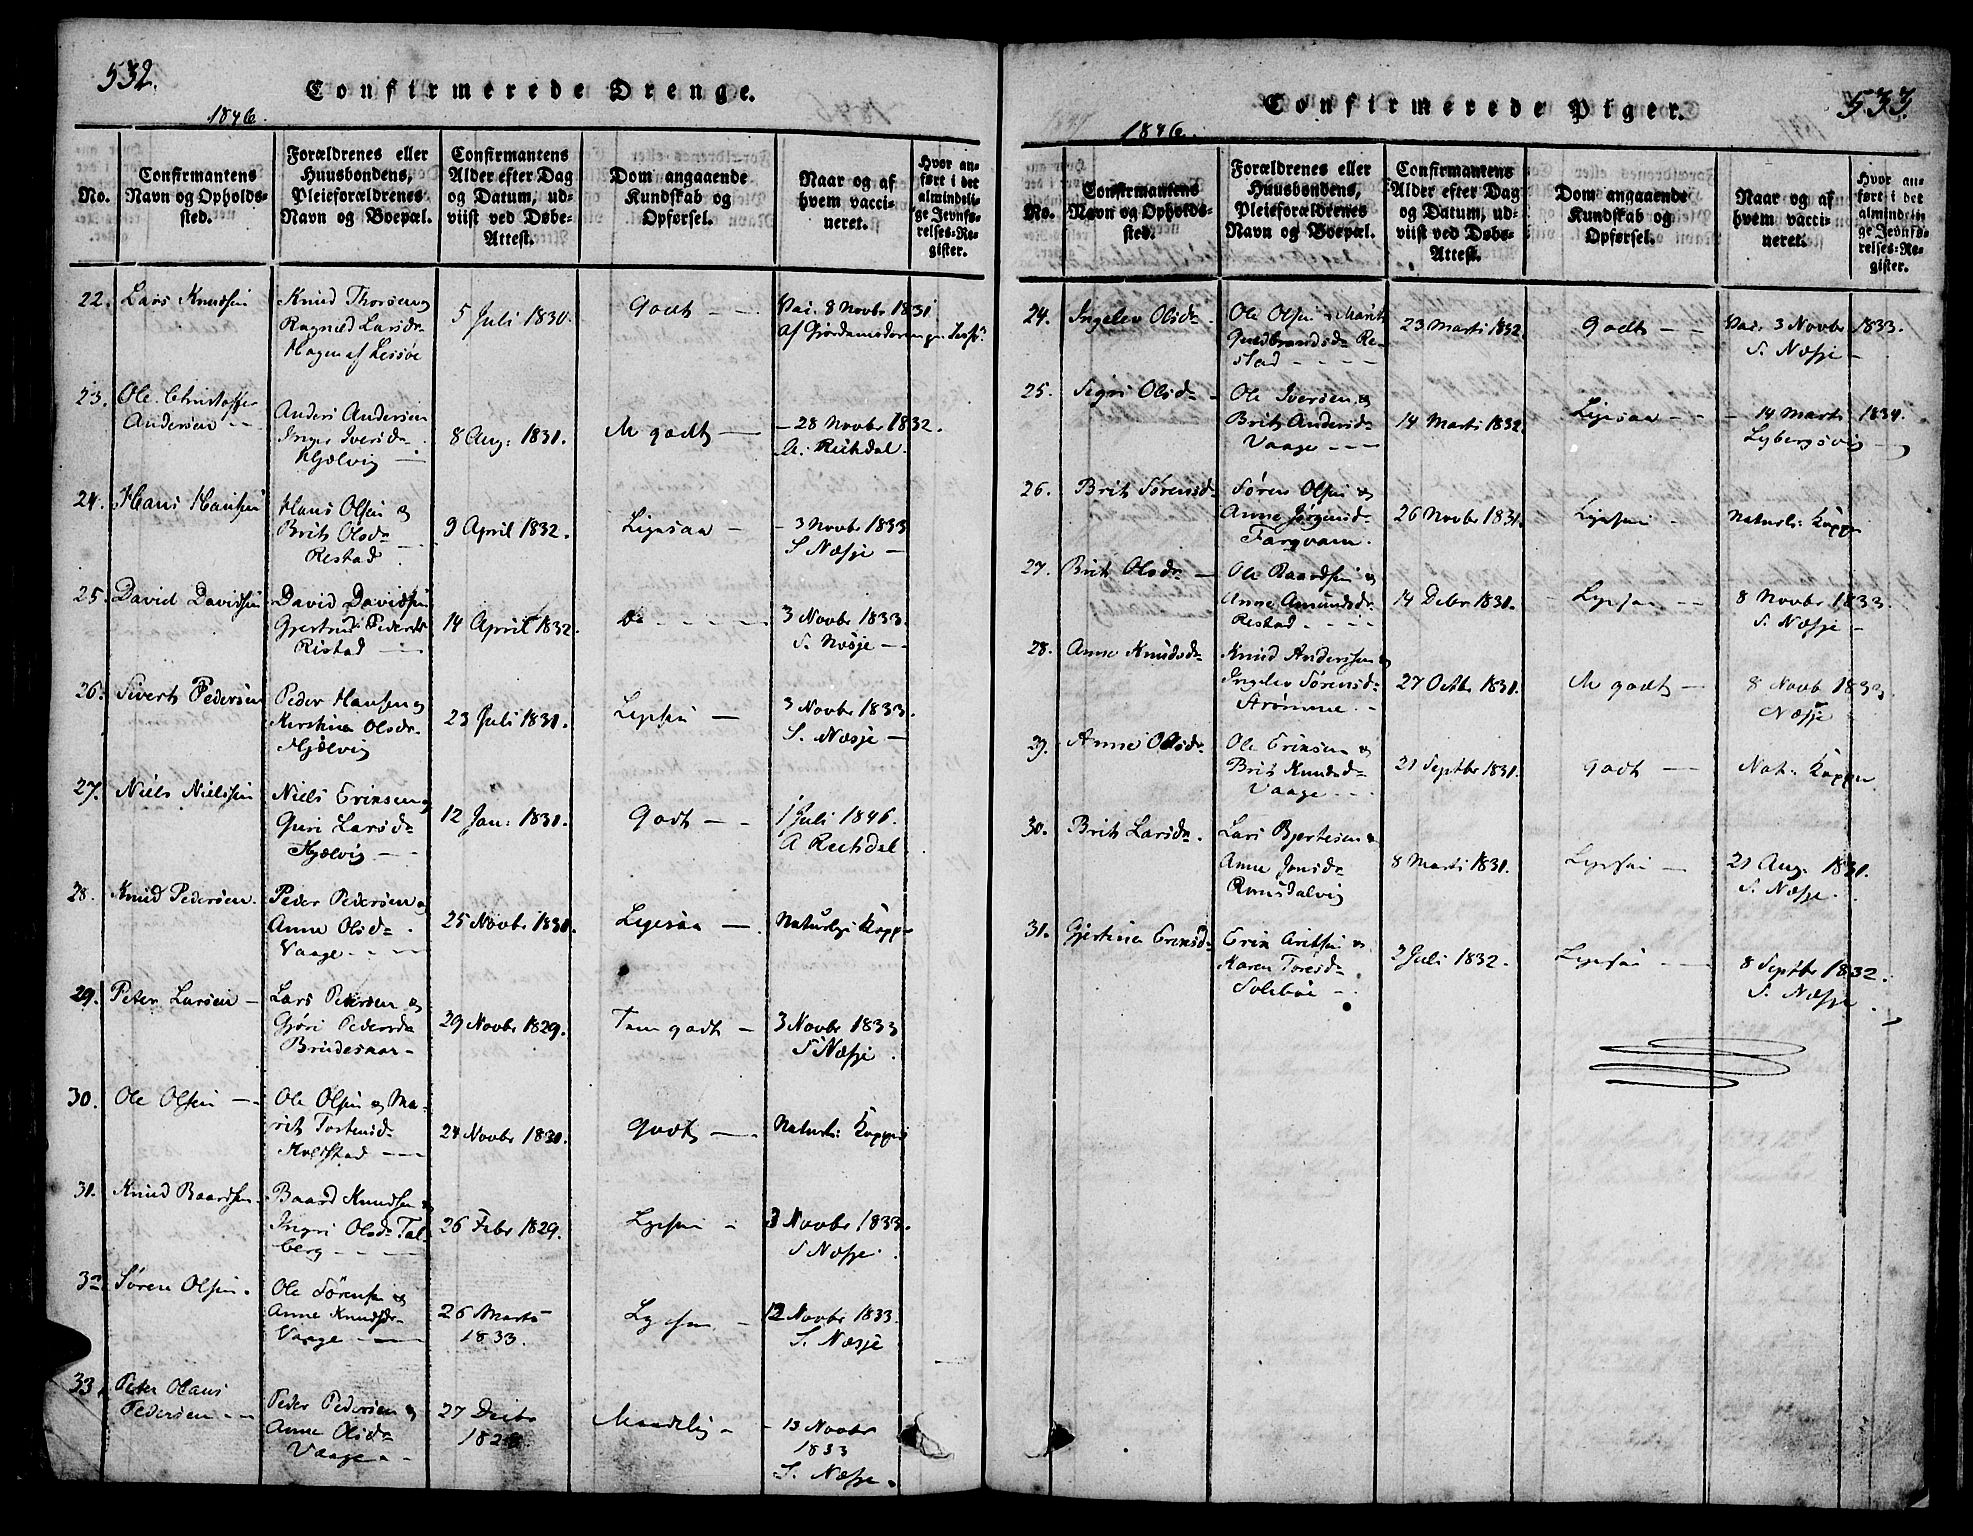 532.
Confirmerede Drenge.
1846.
No.
Confirmantens
Navn og Opholds-
sted.
Forældrenes eller
Huusbondens,
Pleieforældrenes
Navn og Boepæl.
Confirmantens
Alder efter Dag
og Datum, ud-
viist ved Døbe-
Attest.
Dom angaaende
Kundskab og
Opførsel.
Naar og af
hvem vacci-
neret.
Hvor an-
ført i det
almindeli-
ge Jevnfø-
relses-Re-
gister.
22. Lars Knudsen
Knud Thorsen og
Ragnild Larsdr
Hagen af Lessöe
5 Juli 1830.
Godt -
Vai. 8 Novbr 1831
Af
23. Ole Christoffer
Andersen -
Anders Andersen
Inger Iversdr
Hjelvig -
8 Aug: 1831.
M godt -
- 28 Novbr 1832.
A. Rechdal.
24. Hans Hansen
Hans Olsen og
Brit Olsdr
Restad -
9 April 1832.
Ligesaa -
- 3 Novbr 1833
S Næsje -
25. David Davidsen
David Davidsen
Gjertrud Pedersdr
Ristad -
14 April 1832.
do -
3 Novbr 1833.
S. Næsje -
26. Sivert Pedersen
Peder Hansen og
Kirstina Olsdr
Hjelvig
23 Juli 1831.
Ligesaa -
3 Novbr 1833.
S. Næsje -
27. Niels Nielsen
Niels Eriksen og
Guri Larsdr
Hjelvig -
12 Jan: 1831.
Godt -
1 Juli 1846.
A Rechdal
28. Knud Pedersen.
Peder Pedersen og
Anne Olsdr
Vaage -
25 Novbr 1830.
Ligesaa -
Naturlige Kopper
29. Peter Larsen -
Lars Petersen og
Gjøri Pedersdr
29 Novbr 1829.
Tem godt -
3 Novbr 1833
S Næsje.
30. Ole Olsen -
Ole Olsen og Ma-
rit Tostensdr
24 Novbr 1830.
Godt -
Naturli: Kopper
31. Knud Baardsen.
Baard Knudsen og
Ingri Olsdr Tal-
berg -
26 Febr 1829.
Ligesaa -
3 Novbr 1833.
S Næsje.
32. Søren Olsen.
Ole Sørensen og
Anne Knudsdr
Vaage -
26 Marts
1833.
Ligesaa -
12 Novbr 1833.
S. Næsje
33. Peter Olaus
Pedersen -
Peder Pedersen og
Anne Olsdr
Vaage -
27 Decbr
Maadelig -
- 13 Novbr
1833
S. Næsje.
Confirmerede Piger.
533.
1846.
No.
Confirmantens
Navn og Opholds-
sted.
Forældrenes eller
Huusbondens,
Pleieforældrenes
Navn og Boepæl.
Confirmantens
Alder efter Dag
og Datum, ud-
viist ved Døbe-
Attest.
Dom angaaende
Kundskab og
Opførsel.
Naar og af
hvem vacci-
neret.
Hvor an-
ført i det
almindelig-
ge Jevnfø-
relses-Re-
gister.
24. Ingelev Olsdr
Ole Olsen og Marit
Guldbrandsdr Re-
stad -
23 Marts 1832.
Godt -
Vai. 3 Novbr 1833.
S. Næsje -
25. Sigri Olsdr
Ole Iversen og
Brit Andersdr
Vaage -
14 Marts 1832.
Ligesaa -
- 14 Marts 1834.
Lybergsvig -
26. Brit Sørensdr
Søren Olsen og
Anne Jørgensdr
Fargvam.
26 Novbr 1831.
Ligesaa -
Naturli: Kopper
27. Brit Olsdr -
Ole Baardsen og
Anne Amundsdr
Restad -
14 Debr 1831.
Ligesaa -
8 Novbr 1833.
S. Næsje -
28. Anne Knudsdr
Knud Anderssen og
Ingelev Sørensdr
Strømme -
27 Octbr 1831.
M godt -
8 Novb 1833
Næsje
29. Anne Olsdr
Ole Eriksen og
Brit Knudsdr
Vaage -
21 Septbr 1831.
Godt -
Nat. Kopper
30. Brit Larsdr.
Lars Bjertesen og
Anne Jonsdr
Romsdalvig
8 Marts 1831.
Ligesaa -
21 Aug. 1831.
S. Næsje.
31. Gjertina Eriksdr
Erik og
Karen Toresdr
Soleböe -
2 Juli 1832.
Ligesaa -
8 Septbr 1832.
S. Næsje.